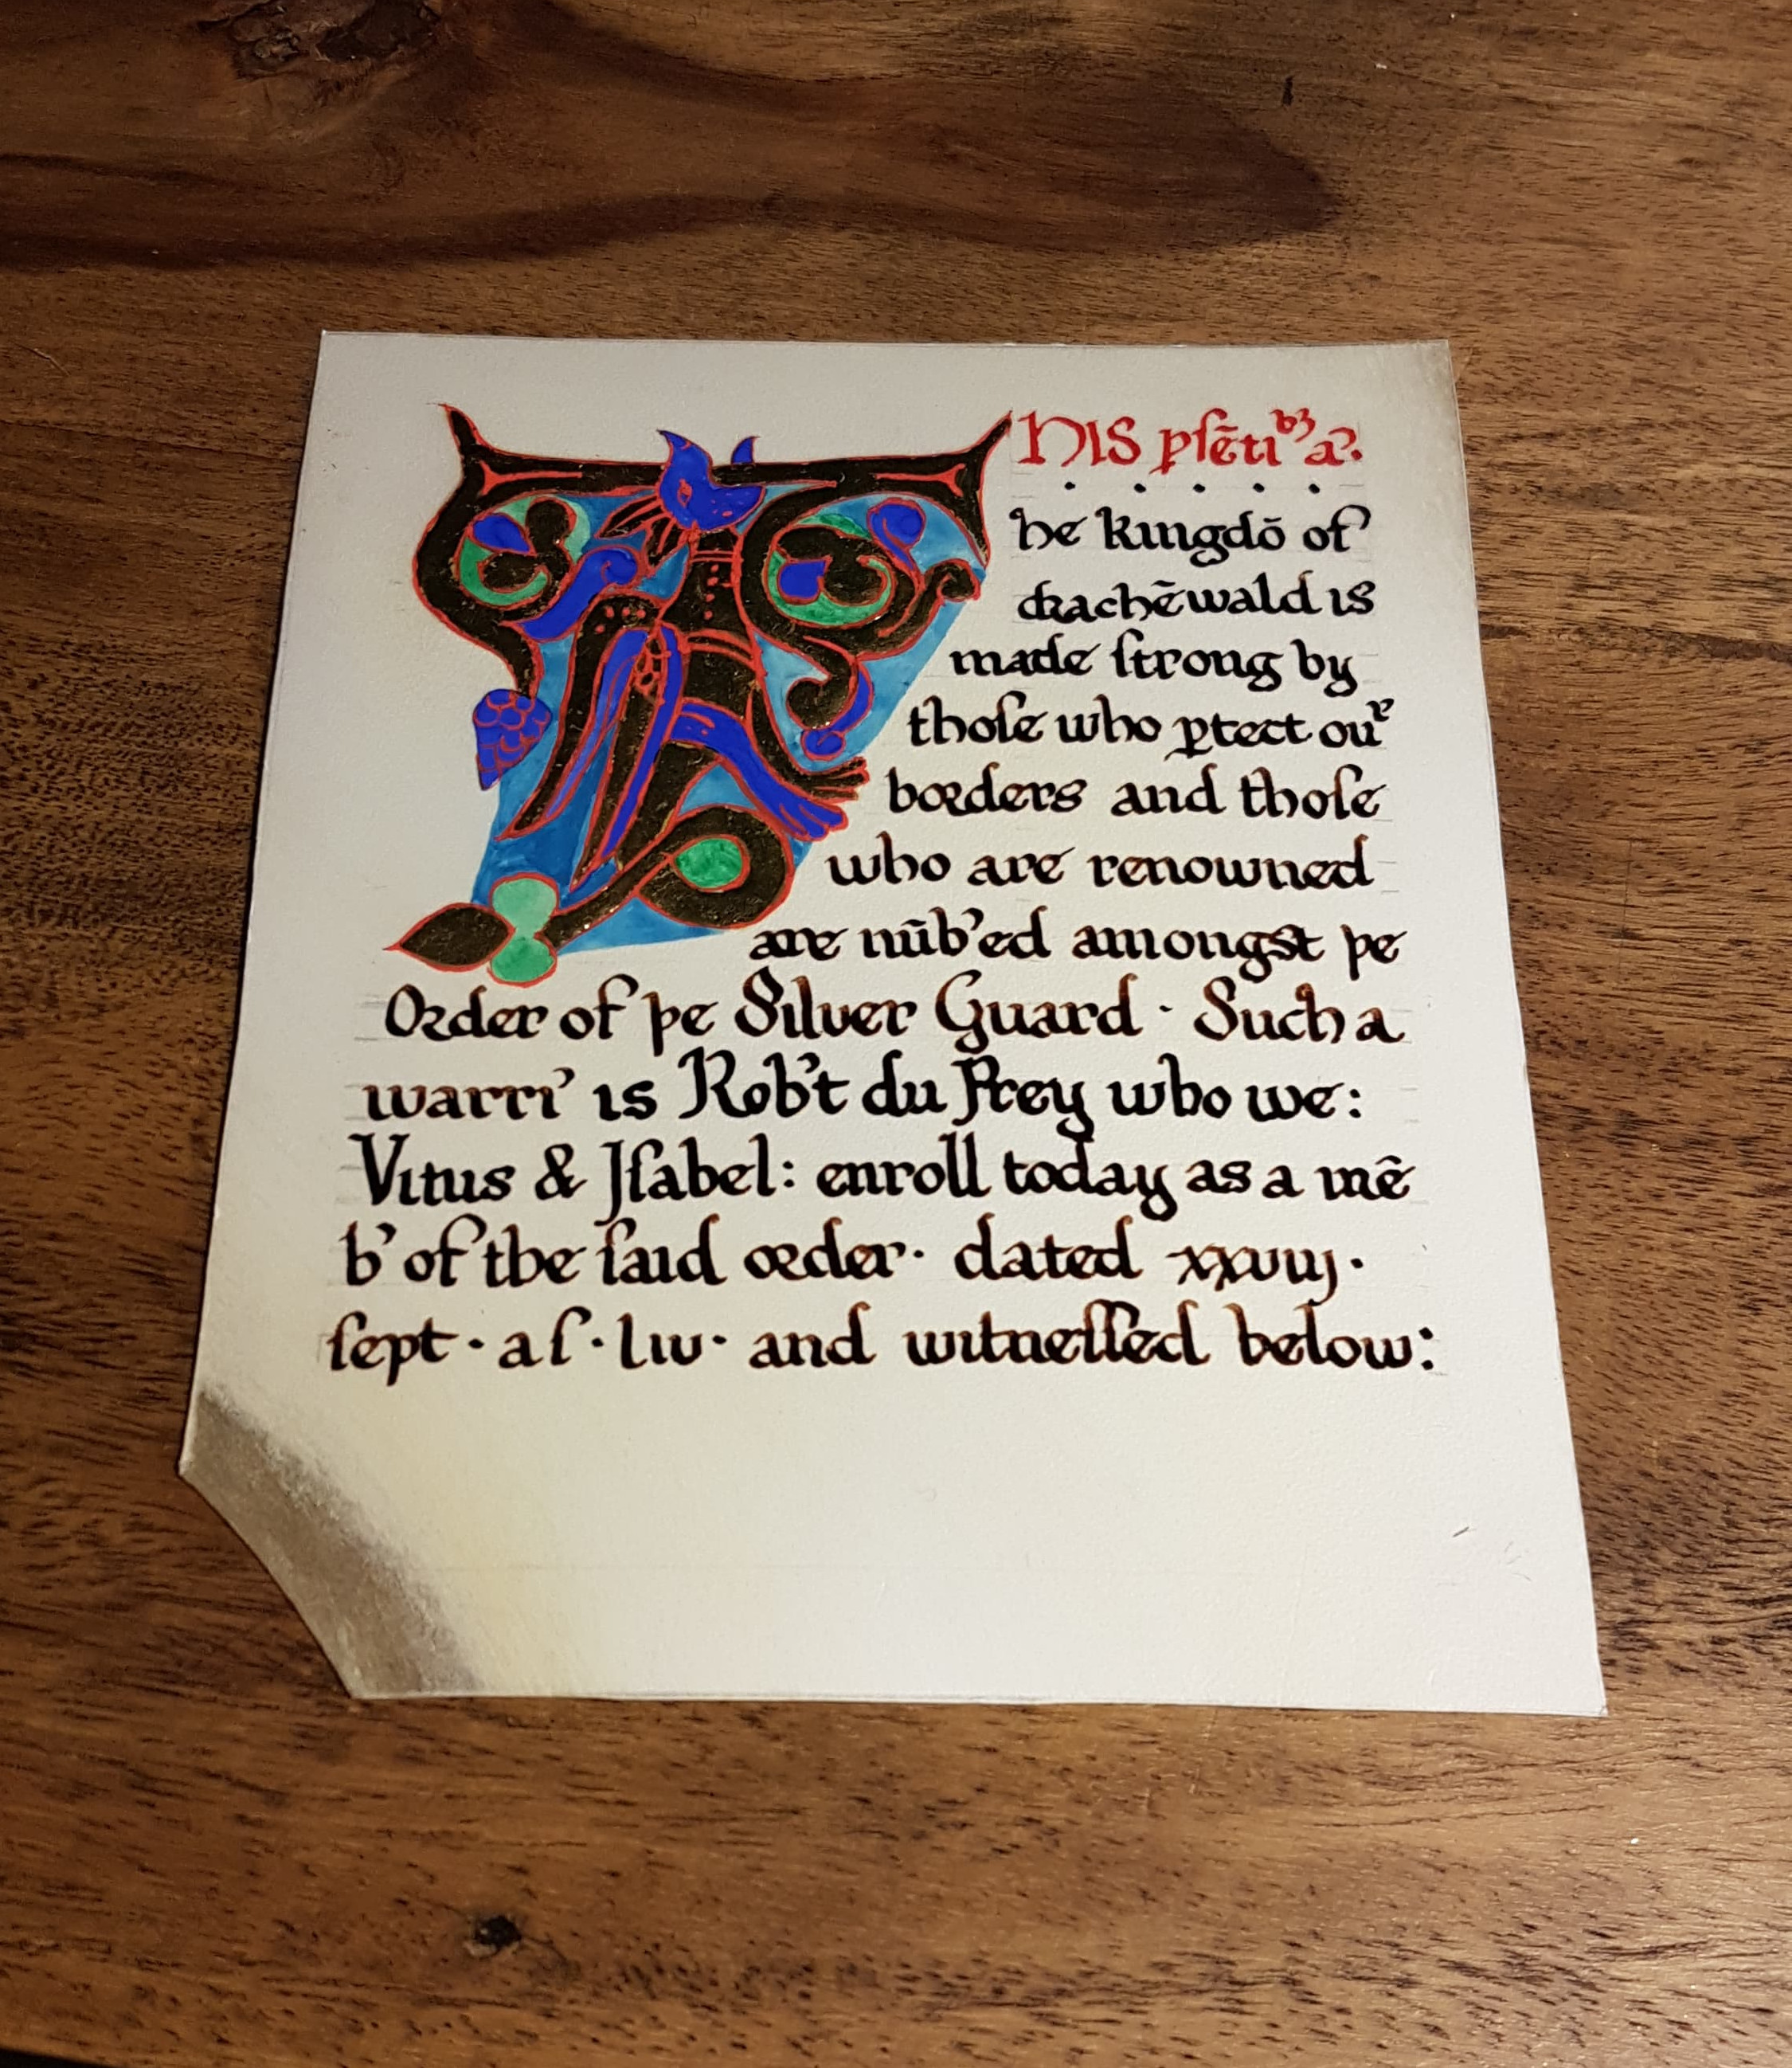 hIS pſēti^bꝫ a?
he kingdō of
drachēwald is
made ſtrong by
thoſe who ꝓtect ou^r
borders and thoſe
who are renowned
are nūb'ed amongst þe
Order of þe Silver Guard · Such a
warri' is Rob't du Frey who we:
Vitus & Iſabel: enroll today as a mē
b' of the ſaid order· dated xxviij·
ſept · a ſ · liv · and witneſſed below: